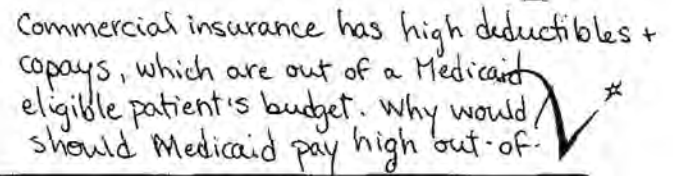 Commercial insurance has high deductibles +
copays, which are out of a Medicaid
eligible patient's budget. Why would/
should Medicaid pay high out-of-